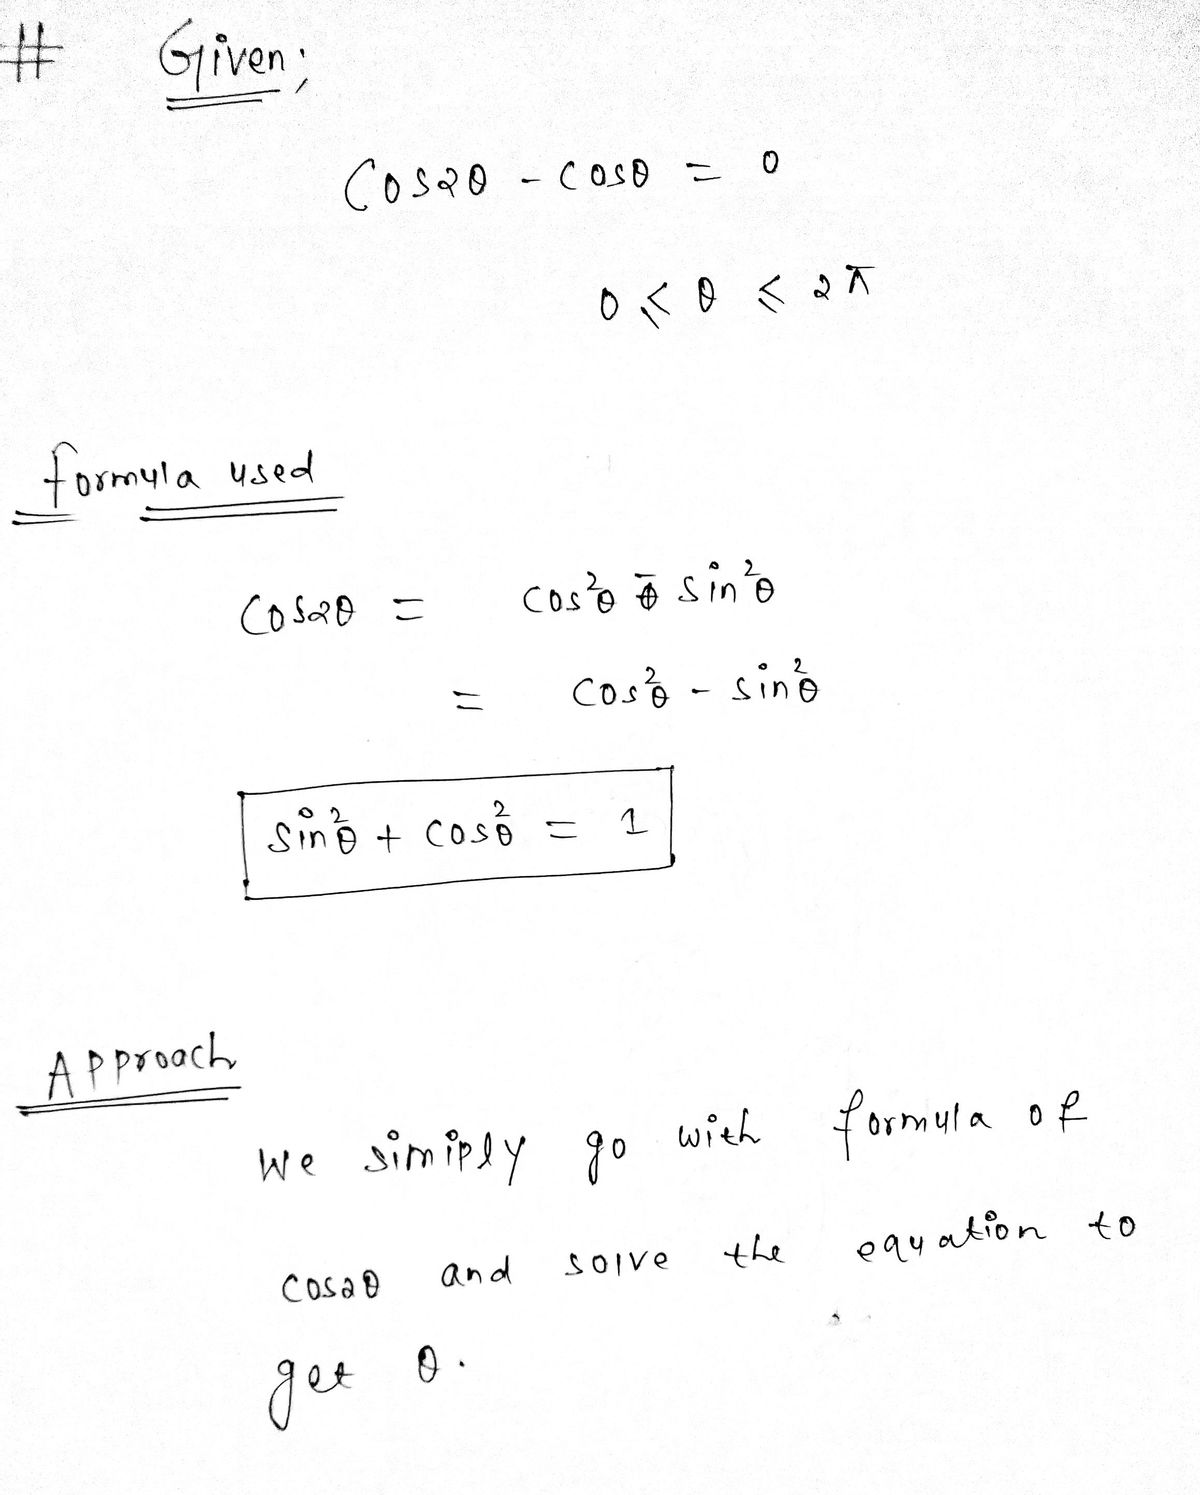 # Given;
cos2θ - cosθ = 0
0 ⩽ θ ⩽ 2π
formula used
cos2θ = cos²θ - sin²θ
= cos²θ - sin²θ
sin²θ + cos²θ = 1
Approach
We simiply go with formula of
cos2θ and solve the equation to
get θ.